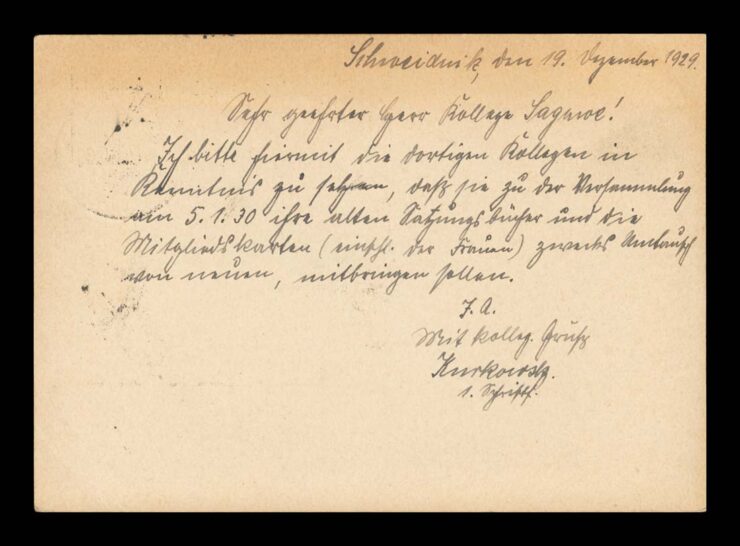 Schweidnitz, den 19. Dezember 1929.
Sehr geehrter Herr Kollege Sagawe!
Ich bitte hiermit die dortigen Kollegen in
Kenntnis zu setzen, daß sie zu der Versammlung
am 5.1.30 ihre alten Satzungsbücher und die
Mitgliedskarten (einschl. der Frauen) zwecks Umtausch
von neuen, mitbringen sollen.
I. A.
Mit kolleg. Gruß
1. Schriftf.